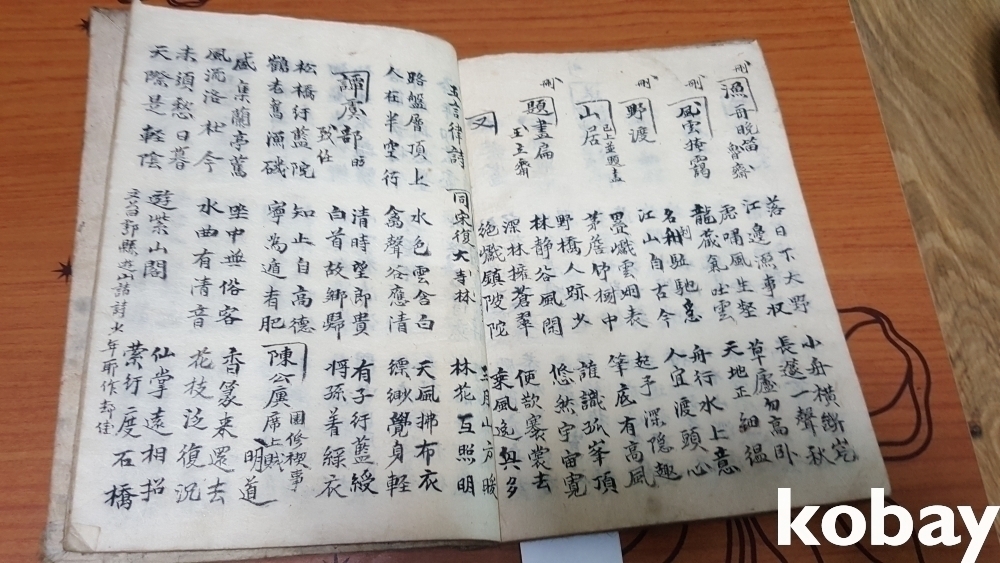 刪 漁哥晚笛 魯齋
落日下大野
江邊漁事收
小舟橫斷岸
長邃一聲秋
刪 風雲掩靄
虎嘯風生壑
龍藏氣吐雲
草廬勿高卧
天地正絪縕
刪 野渡
名利駈馳急
江山自古今
舟行水上意
人宜渡頭心
山居 已上並題畫
疊巘雲烟表
茅茨竹樹中
起予深隐趣
筆底有高風
刪 題畫扇 王主齋
野橋人跡少
林静谷風閑
誰識孤峯頂
悠然宇宙寬
又
深林擁蒼翠
絕巘鎮陂陀
便欲褰裳去
乘風逸興多
五言律詩
同宋復大寺林
三月山方暖
林花互照明
路盤層頂上
人在半空行
水色雲含白
禽聲谷應清
天風拂布衣
縹緲覺身輕
譚虞部 昉 致仕
清時望郎貴
白首故鄉歸
有子行藍綬
將孫着綵衣
松橋紆藍院
鶴老舊漁磯
知止自高德
寧為遁者肥
陳公廙 園修禊事 席上賦 明道
盛集蘭亭舊
風流洛社今
坐中無俗客
水曲有清音
香篆來還去
花枝泛復沉
未須愁日暮
天際是輕陰
遊紫山閣
仙掌遠相招
縈行度石橋
kobay